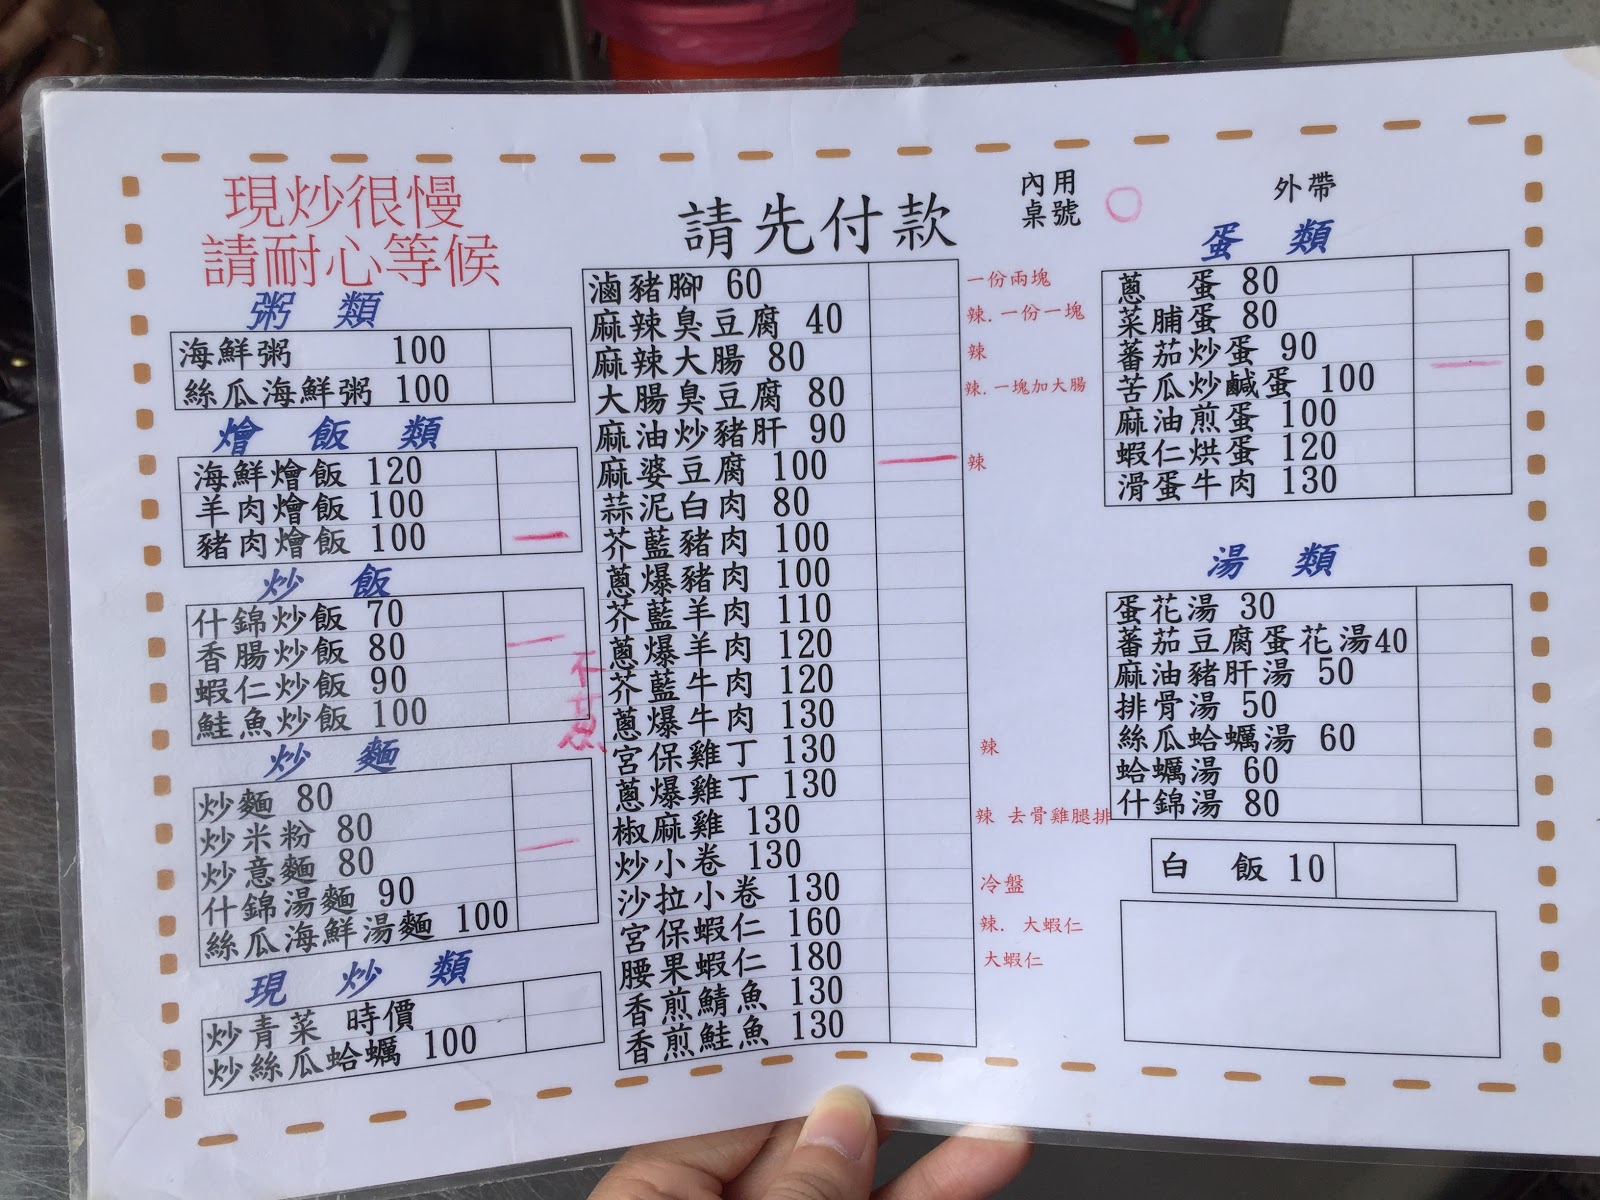 現炒很慢
請耐心等候
粥 類
海鮮粥 100
絲瓜海鮮粥 100
燴 飯 類
海鮮燴飯 120
羊肉燴飯 100
豬肉燴飯 100
炒 飯
什錦炒飯 70
香腸炒飯 80
蝦仁炒飯 90
鮭魚炒飯 100
不蔥
炒 麵
炒麵 80
炒米粉 80
炒意麵 80
什錦湯麵 90
絲瓜海鮮湯麵 100
現 炒 類
炒青菜 時價
炒絲瓜蛤蠣 100
請先付款
滷豬腳 60 一份兩塊
麻辣臭豆腐 40 辣.一份一塊
麻辣大腸 80 辣
大腸臭豆腐 80 辣.一塊加大腸
麻油炒豬肝 90
麻婆豆腐 100 辣
蒜泥白肉 80
芥藍豬肉 100
蔥爆豬肉 100
芥藍羊肉 110
蔥爆羊肉 120
芥藍牛肉 120
蔥爆牛肉 130
宮保雞丁 130 辣
蔥爆雞丁 130
椒麻雞 130 辣 去骨雞腿排
炒小卷 130
沙拉小卷 130 冷盤
宮保蝦仁 160 辣. 大蝦仁
腰果蝦仁 180 大蝦仁
香煎鯖魚 130
香煎鮭魚 130
內用
桌號
外帶
蛋 類
蔥 蛋 80
菜脯蛋 80
蕃茄炒蛋 90
苦瓜炒鹹蛋 100
麻油煎蛋 100
蝦仁烘蛋 120
滑蛋牛肉 130
湯 類
蛋花湯 30
蕃茄豆腐蛋花湯40
麻油豬肝湯 50
排骨湯 50
絲瓜蛤蠣湯 60
蛤蠣湯 60
什錦湯 80
白 飯 10